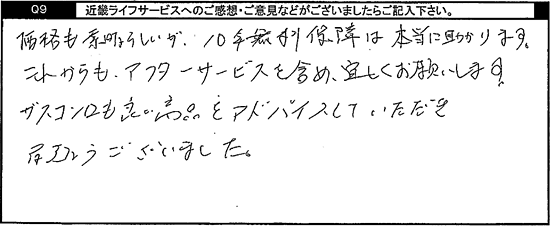 Q9 近畿ライフサービスへのご感想・ご意見などがございましたらご記入下さい。
価格も素晴らしいが、10年無料保障は本当に助かります。
これからも、アフターサービスを含め、宜しくお願いします。
ガスコンロも良い商品をアドバイスしていただき
有難うございました。